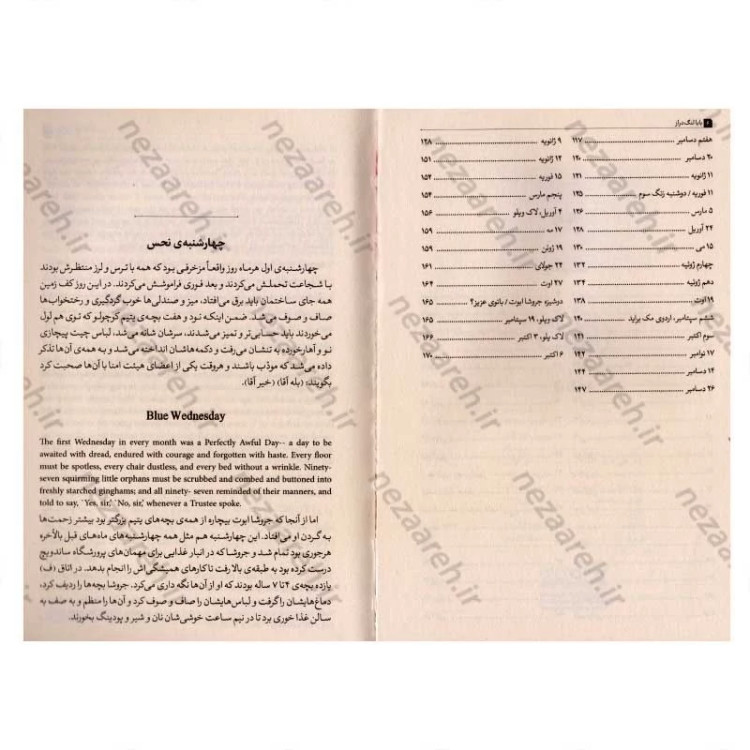 بابا لنگ دراز
هفتم دسامبر ۱۱۷
۲۰ دسامبر ۱۲۰
۱۱ ژانویه ۱۲۱
۱۱ فوریه / دوشنبه زنگ سوم ۱۲۵
۵ مارس ۱۲۶
۲۴ آوریل ۱۲۸
۱۵ می ۱۳۰
چهارم ژوئیه ۱۳۲
دهم ژوئیه ۱۳۴
۱۹ اوت ۱۳۸
ششم سپتامبر، اردوی مک براید ۱۴۰
سوم اکتبر ۱۴۱
۱۷ نوامبر ۱۴۲
۱۴ دسامبر ۱۴۴
۲۶ دسامبر ۱۴۷
۹ ژانویه ۱۴۸
۱۲ ژانویه ۱۵۱
۱۵ فوریه ۱۵۲
پنجم مارس ۱۵۴
۴ آوریل، لاک ویلو ۱۵۶
۱۷ مه ۱۵۹
۱۹ ژوئن ۱۵۹
۲۴ جولای ۱۶۱
۲۷ اوت ۱۶۴
دوشیزه جروشا ابوت / بانوی عزیز؟ ۱۶۵
لاک ویلو، ۱۹ سپتامبر ۱۶۵
لاک یلو، ۳ اکتبر ۱۶۶
۶ اکتبر ۱۷۰
چهارشنبه‌ی نحس
چهارشنبه‌ی اول هرماه روز واقعاً مزخرفی بود که همه با ترس و لرز منتظرش بودند
با شجاعت تحملش می‌کردند و بعد فوری فراموشش می‌کردند. در این روز کف زمین
همه جای ساختمان باید برق می‌افتاد، میز و صندلی‌ها خوب گردگیری و رختخواب‌ها
صاف و صوف می‌شد. ضمن اینکه نود و هفت بچه‌ی یتیم کوچولو که توی هم لول
می‌خوردند باید حسابی‌تر و تمیز می‌شدند، سرشان شانه می‌شد، لباس چیت پیچازی
نو و آهارخورده به تنشان می‌رفت و دکمه‌هاشان انداخته می‌شد و به همه‌ی آن‌ها تذکر
داده می‌شد که مؤدب باشند و هروقت یکی از اعضای هیئت امنا با آن‌ها صحبت کرد
بگویند: (بله آقا) (خیر آقا).
Blue Wednesday
The first Wednesday in every month was a Perfectly Awful Day-- a day to be
awaited with dread, endured with courage and forgotten with haste. Every floor
must be spotless, every chair dustless, and every bed without a wrinkle. Ninety-
seven squirming little orphans must be scrubbed and combed and buttoned into
freshly starched ginghams; and all ninety- seven reminded of their manners, and
told to say, `Yes, sir,' `No, sir,' whenever a Trustee spoke.
اما از آنجا که جروشا ابوت بیچاره از همه‌ی بچه‌های یتیم بزرگتر بود بیشتر زحمت‌ها
به گردن او می‌افتاد. این چهارشنبه هم مثل همه چهارشنبه‌های ماه‌های قبل بالأخره
هرجوری بود تمام شد و جروشا که در انبار غذایی برای مهمان‌های پرورشگاه ساندویچ
درست کرده بود به طبقه‌ی بالا رفت تا کارهای همیشگی‌اش را انجام بدهد. در اتاق (ف)
یازده بچه‌ی ۴ تا ۷ ساله بودند که او از آن‌ها نگه داری می‌کرد. جروشا بچه‌ها را ردیف کرد،
دماغ‌هایشان را گرفت و لباس‌هایشان را صاف و صوف کرد و آن‌ها را منظم و به صف به
سالن غذا خوری برد تا در نیم ساعت خوشی‌شان نان و شیر و پودینگ بخورند.
nezaareh.ir